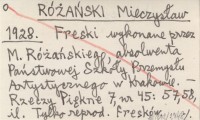 RÓŻAŃSKI Mieczysław
1928. Freski wykonane przez
M. Różańskiego absolwenta
Państwowej Szkoły Przemysłu
Artystycznego w Krakowie. –
Rzeczy Piękne 7, nr 45: 57,58,
il. Tylko reprod. Fresków.